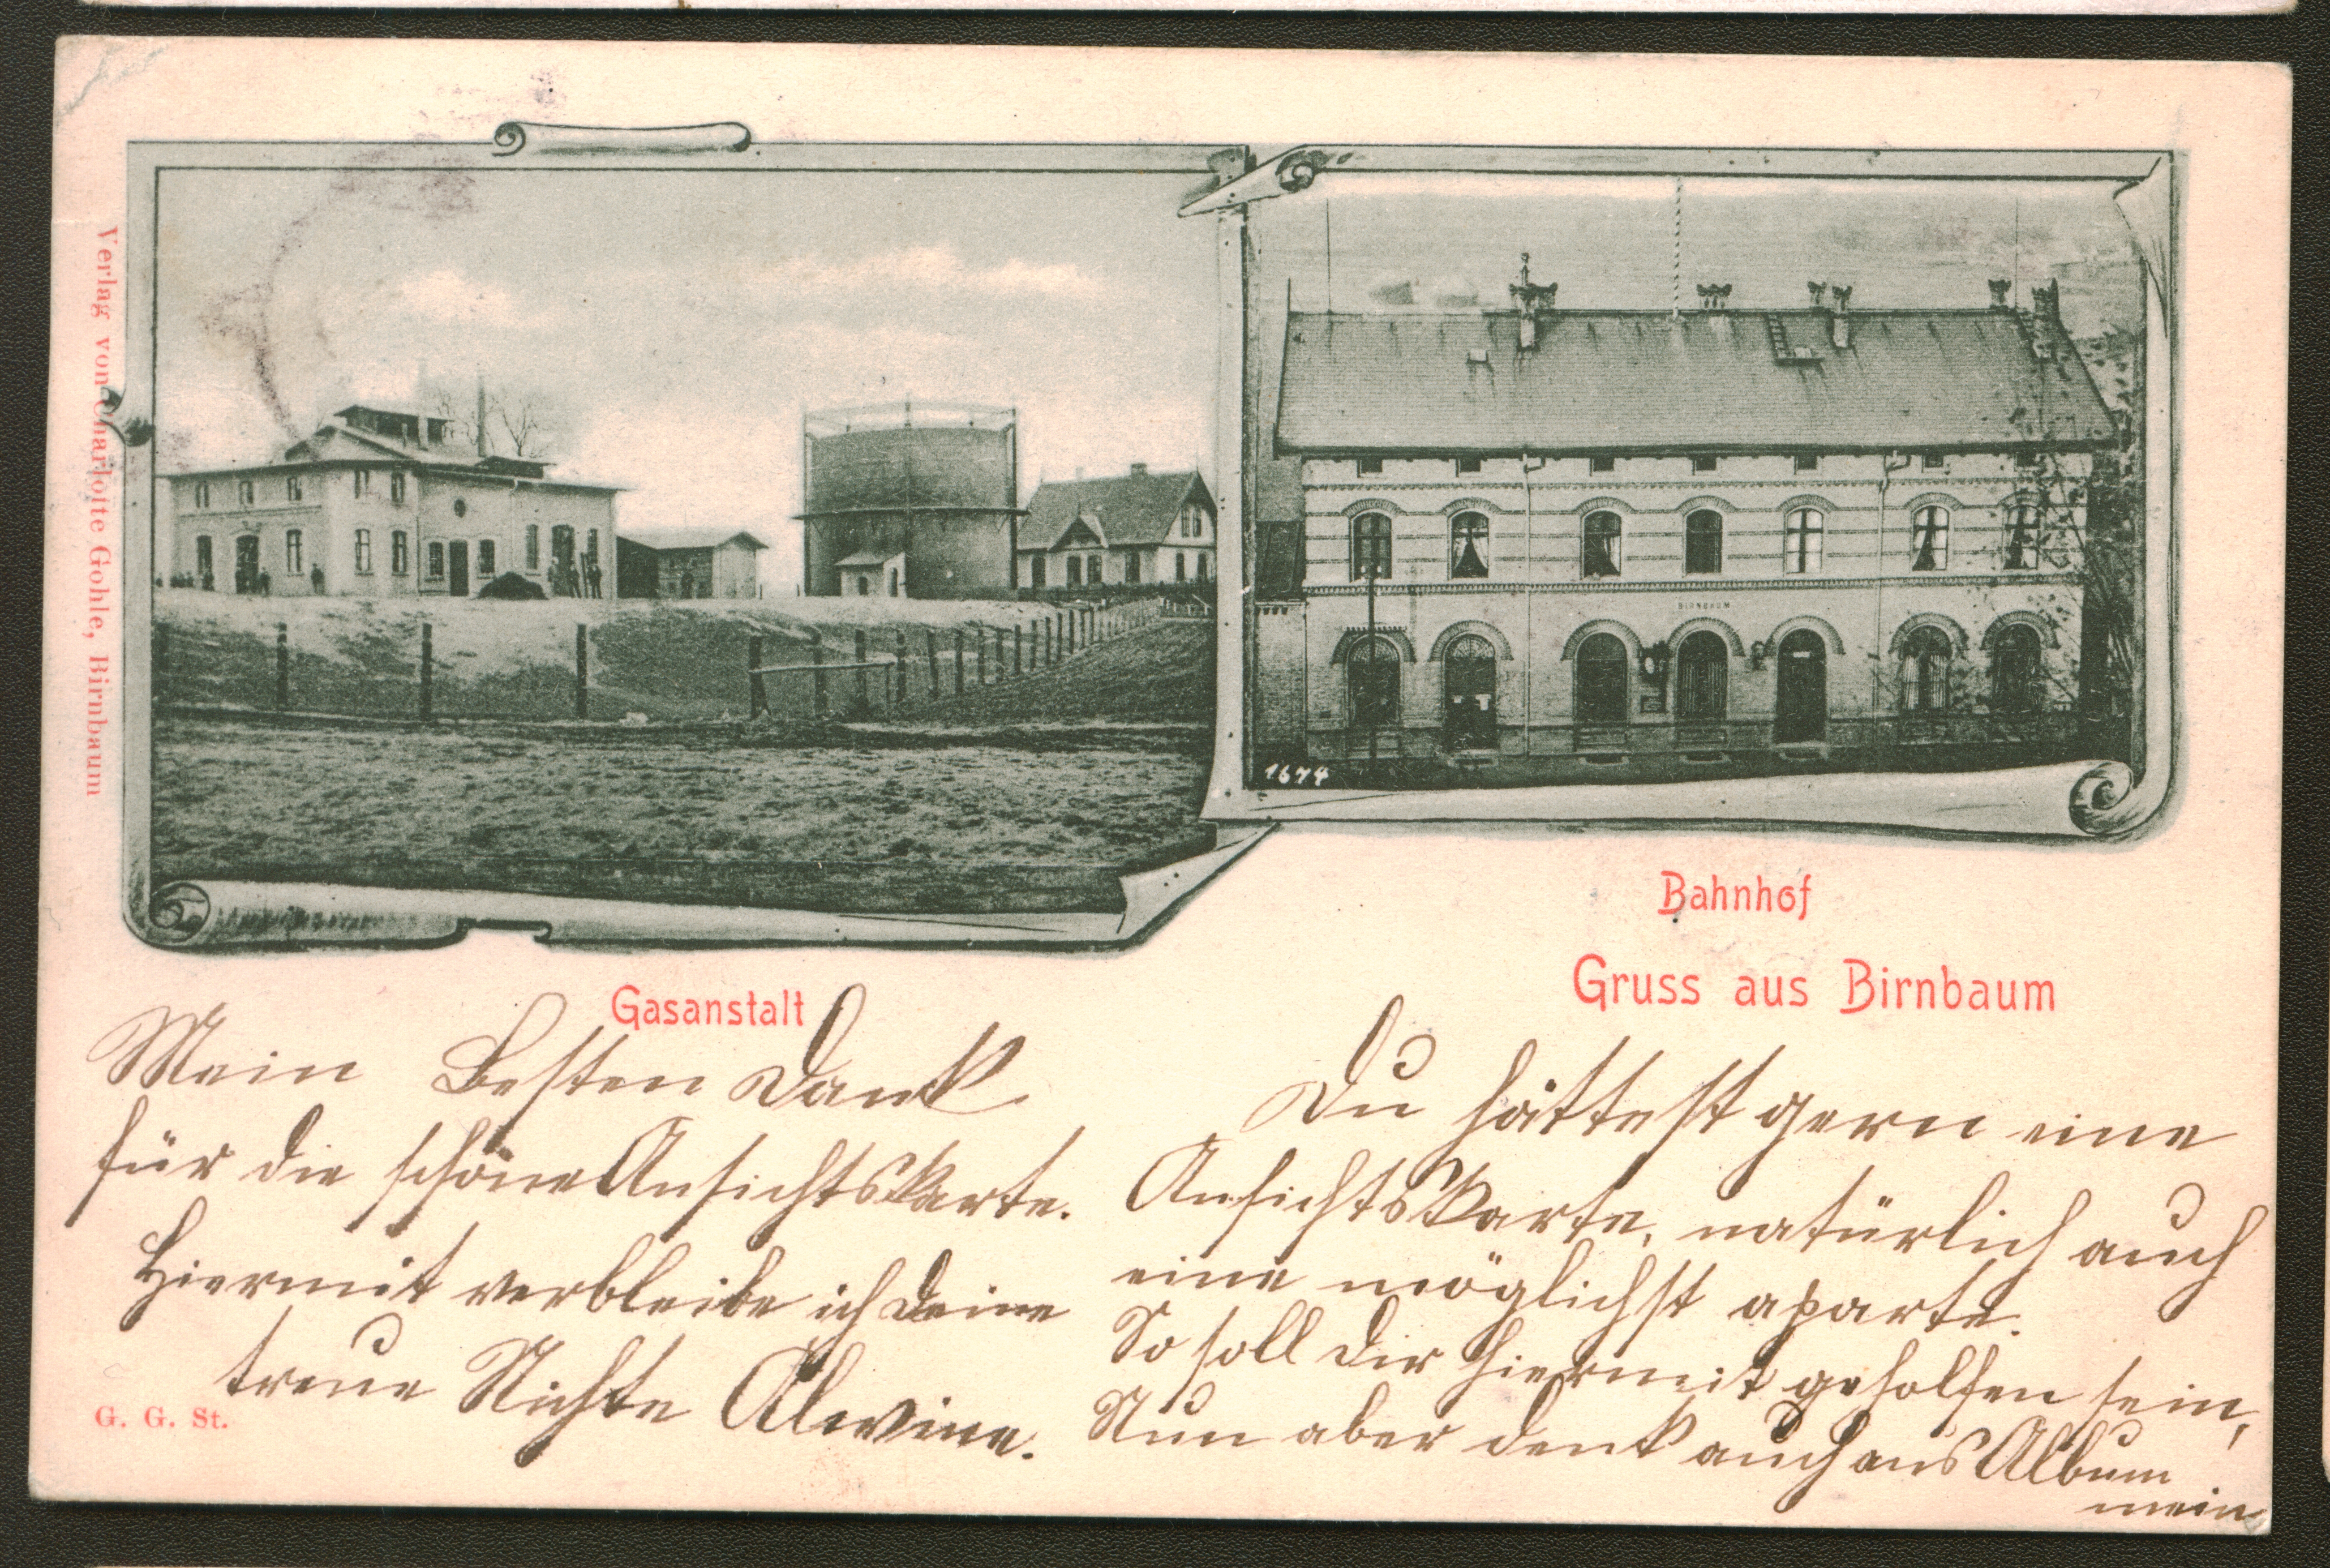 Verlag von Charlotte Gohle, Birnbaum
BIRNBAUM
1674
Bahnhof
Gruss aus Birnbaum
Gasanstalt
Mein Besten Dank
für die schöne Ansichtskarte.
Hiermit verbleibe ich Deine
treue Nichte Alwine.
G. G. St.
Du hättest gern eine
Ansichtskarte, natürlich auch
eine möglichst aparte.
So soll dir hiermit geholfen sein,
Nun aber denk auch ans Album
mein